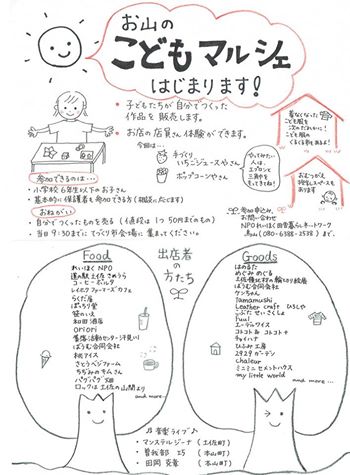 お山の
こどもマルシェ
はじまります!
・子どもたちが自分でつくった
作品を販売します。
・お店の店員さん体験ができます。
今回は…
手づくり
いちごジュースやさん
ポップコーンやさん
着なくなった
こども服を
次のだれかに!
こども服の
くるくる市をあるよ!
やってみたい
人は、
エプロンと
三角巾を
もってきてね!
おむつがえ
授乳スペースも
あります。
参加できるのは…
・小学校6年生以下のお子さん
・基本的に保護者も参加できる方(相談に応じます)
おねがい
・自分でつくったものを売る(値段は1つ50円までのもの)
・当日9:30までにてづくり市会場に集まってください。
参加申込み、
お問い合わせ
NPOれいほく田舎暮らしネットワーク
鳥山(080-6388-2538)まで。
出店者の方たち
Food
れいほくNPO
道の駅土佐さめうら
コーヒーポルタ
レイホクファーマーズカフェ
らくだ屋
ぱっちり堂
笹のいえ
和田酒店
oriori
集落活動センター汗見川
ばうむ合同会社
桃アイス
さとうベジファーム
ちぢみのキムさん
パクパク畑
ロックは土佐の山間より
and more…
Goods
はのるた
めぐみめぐる
ばうむ合同会社
ケンちゃん
Yamamushi
Leather craft ひろしや
こぶた せいさくしょ
Fuul
エーデルワイス
コトコト& コトコト+
チャイハナ
ひふみ工房
2929ガーデン
chaleur
ミニミニセメントハウス
my little world
and more…
♫音楽ライブ♪
・マンステルジーナ(土佐町)
・曽我部 巧(本山町)
・田岡 克章(本山町)